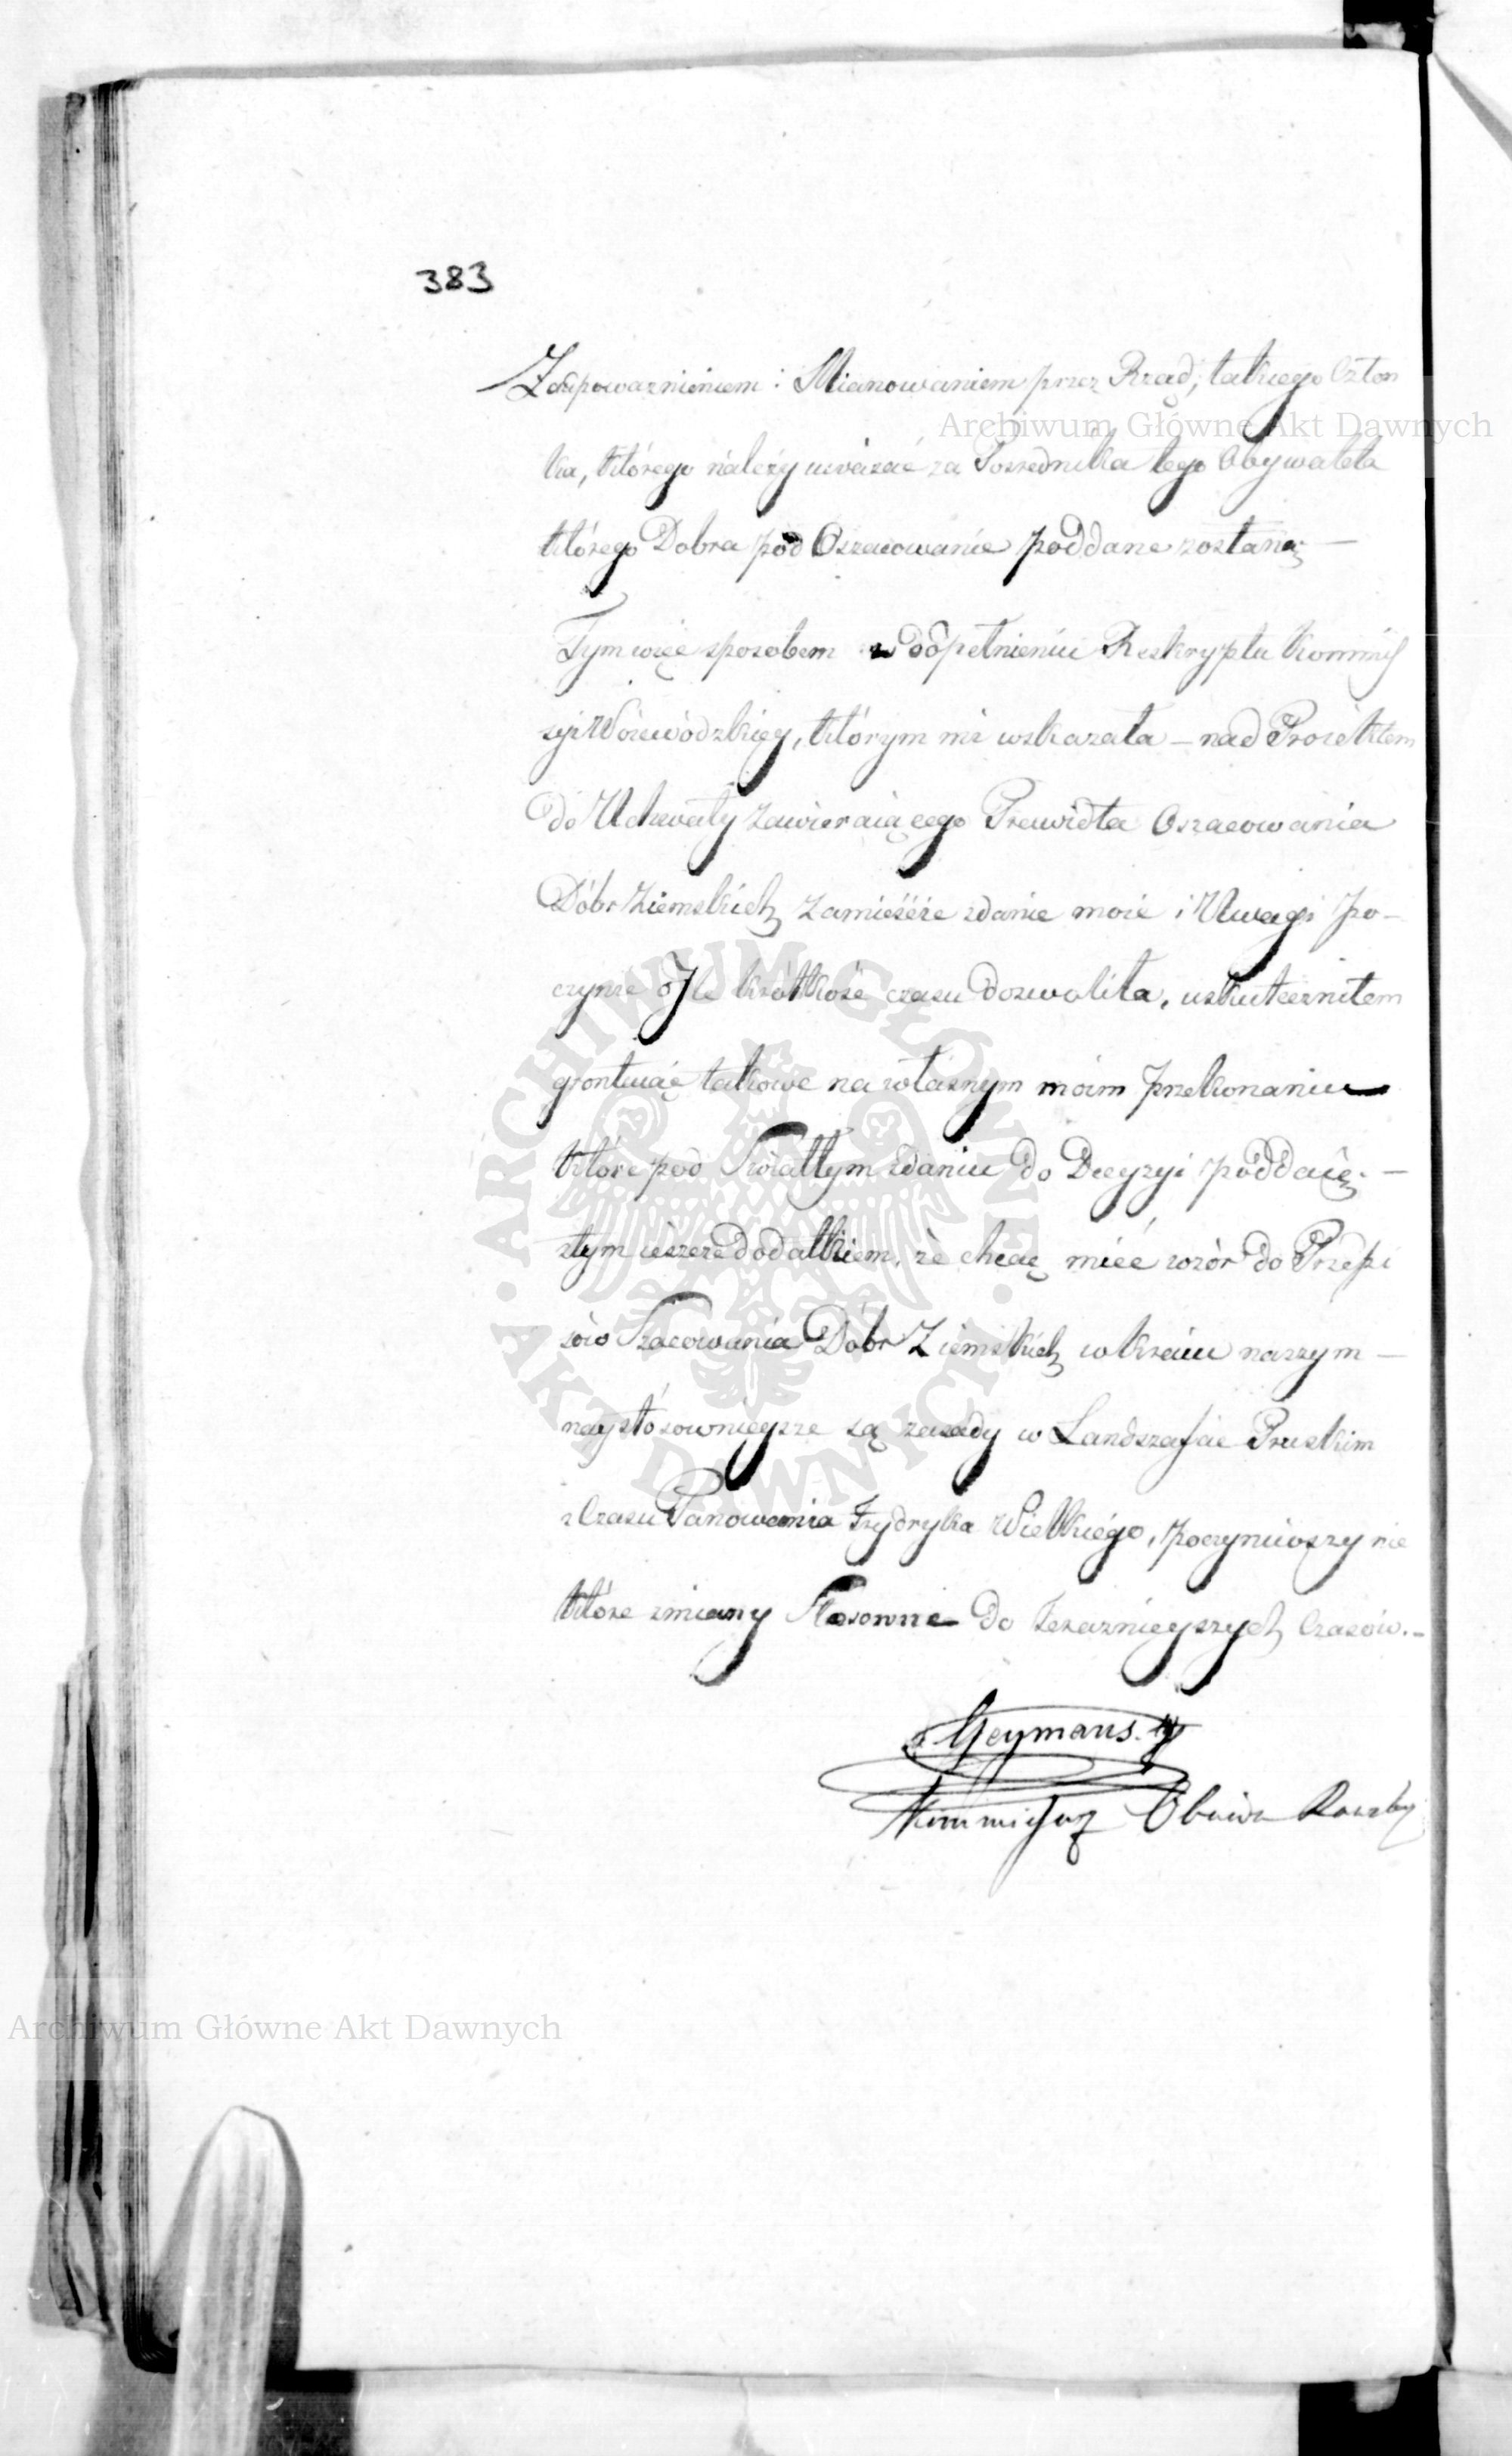 383
Zaupoważnieniem i Mianowaniem przez Rząd, takiego Czton
ka, którego należy uważać za Posrednika tego Obywatela
którego Dobra pod Oszacowanie poddane zostaną —
Tym więc sposobem w dopełnieniu Reskryptu Kommis
syi Woiewodzkiey, którym mi wskazała — nad Proiektem
do Uchwały zawieraiącego Prawidła Oszacowania
Dóbr Ziemskich zamieście zdanie moie i Uwagi po-
czynie o Jle krótkość czasu dozwoliła, uskuteczniłem
grontuiąc takowe na własnym moim przekonaniu
które pod Swiattym zdaniu do Decyzyi poddaię. —
z tym ieszcze dodatkiem, że chcąc mieć wzór do Przepi
sów Szacowania Dóbr Ziemskich w kraiu naszym —
naystosownieysze są zasady w Landszafcie Pruskim
z Czasu Panowania Frydryka Wielkiego, poczyniwszy nie
które zmiany Stosowne do teraznieyszych Czasów. —
Geymans.
Kommissarz Obwodu
Archiwum Główne Akt Dawnych
ARCHIWUM GŁÓWNE · AKT DAWNYCH ·
Archiwum Główne Akt Dawnych